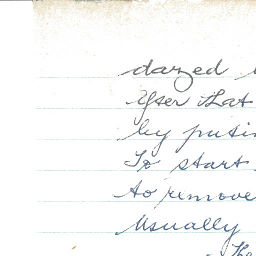 dazed
after that
by putin
To start
to remove
Usually
The